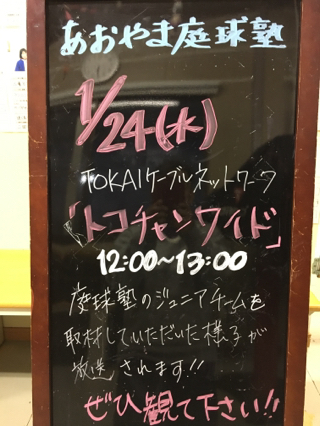 あおやま庭球塾
1/24(水)
TOKAIケーブルネットワーク
「トコチャンワイド」
12:00〜13:00
庭球塾のジュニアチームを
取材していただいた様子が
放送されます!!
ぜひ観て下さい!!